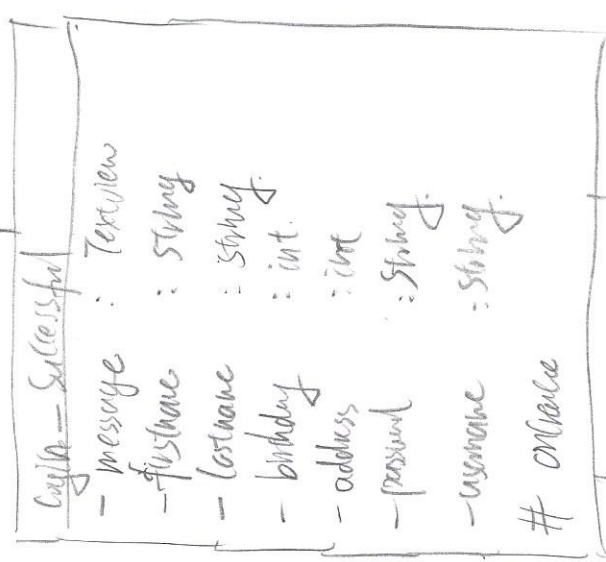 Login - Successful
- message : Textview
- firstname : string
- lastname : string.
- birthday : int.
- address : int
- password : string.
- username : string.
# onCreate